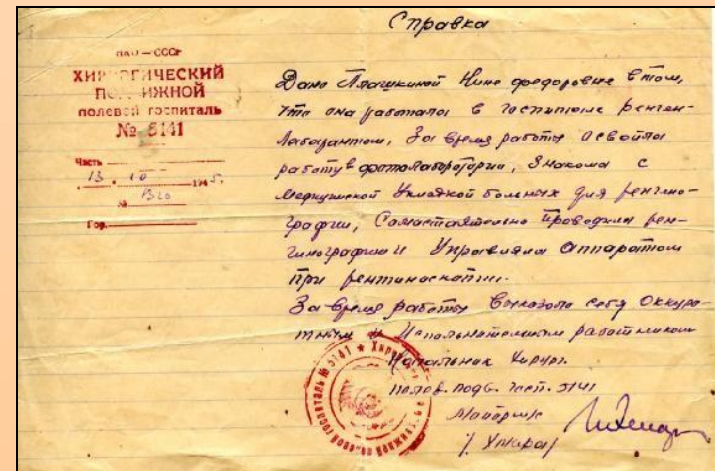 Справка
НКО — СССР
ХИРУРГИЧЕСКИЙ
ПОДВИЖНОЙ
полевой госпиталь
№ 5141
Часть
13 10 1945.
№
Гор.
Дано Плашкиной Нине Федоровне в том,
что она работала в госпитале ренген-
лаборантом, За время работы освоила
работу в фотолаборотории, Знакома с
укладкой больных для ренгено-
графии, Самостоятельно проводила рен-
генографии и Управляла аппаратом
при рентиноскопии.
За время работы Выказала себя Оккура-
тным и Исполнительным работником
Начальник Хирург.
подв. госп. 5141
Майор м/с